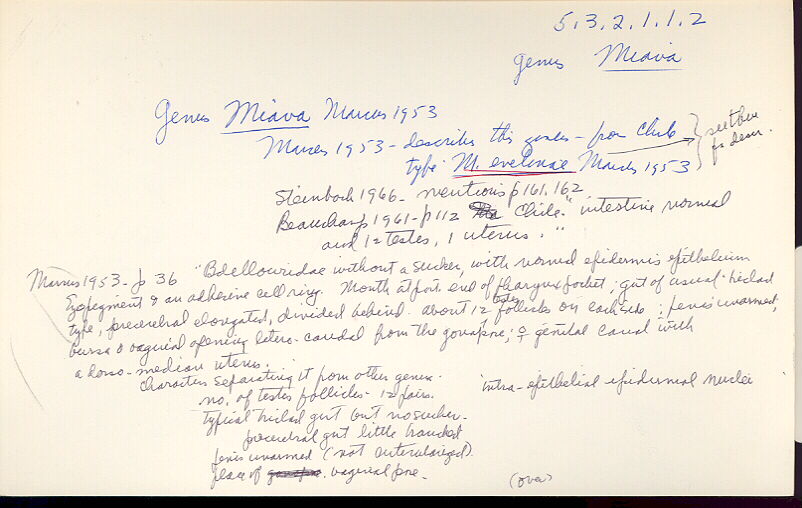 5.3.2.1.1.2
genus Miava
Genus Miava Marcus 1953
Marcus 1953 - describes this genus - from Chile
type M. evelinae Marcus 1953
see there for descr.
Steinbock 1966 - mentions p 161, 162
Beauchamp 1961 - p 112 Chile. "intestine normal
and 12 testes, 1 uterus."
Marcus 1953 - p 36 "Bdellouridae without a sucker, with normal epidermis epithelium
& an adhesive cell ring. Mouth at post. end of pharynx pocket; gut of usual triclad
type, precerebral elongated, divided behind. about 12 testes follicles on each side; penis unarmed;
bursa & vaginal opening latero-caudal from the gonopore; ♀ genital canal with
a dorso-median uterus.
Characters separating it from other genera.
no. of testes follicles - 12 pairs.
intra-epithelial epidermal nuclei
typical triclad gut but no sucker.
precerebral gut little branched
penis unarmed (not cuticularized).
place of vaginal pore.
(over)